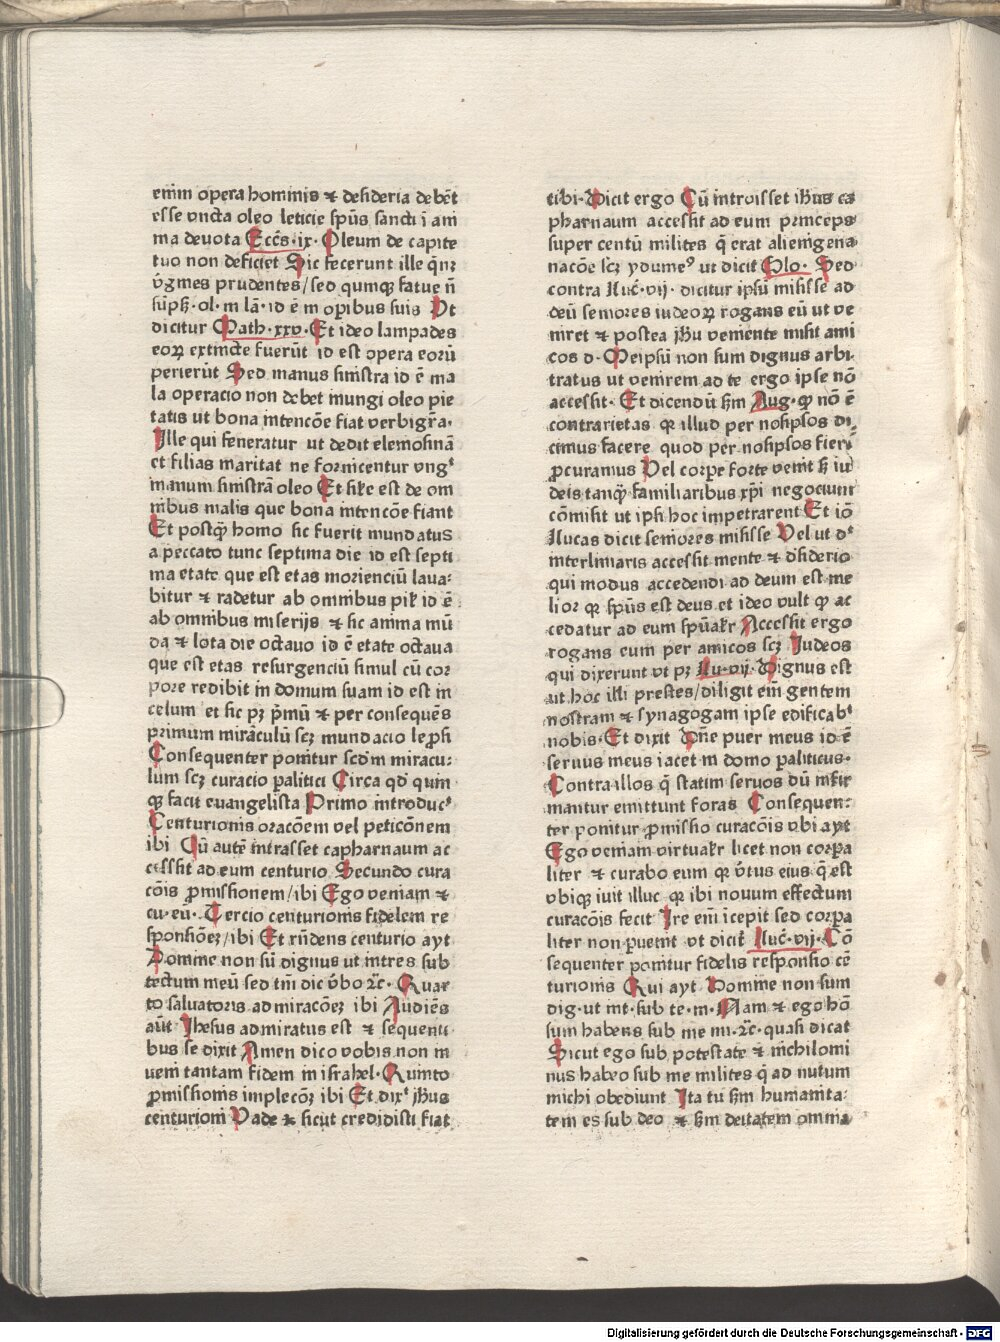 enim opera hominis ⁊ desideria debēt
esse vncta oleo leticie spūs sancti ī ani
ma deuota Eccēs·ix· Oleum de capite
tuo non deficiet Sic fecerunt ille qīnꝫ
v̄gines prudentes/sed qumqꝫ fatue n̄
sūpꝫ·ol·in lā·id ē in oꝑibus suis Vt
dicitur Math·xxv· Et ideo lampades
eoꝝ extincte fuerūt id est opera eorū
perierūt Sed manus sinistra id ē ma
la operacio non debet inungi oleo pie
tatis ut bona intencōe fiat verbigr̄a·
Ille qui feneratur ut dedit elemosinā
et filias maritat ne fornicentur vngᵗ
manum sinistrā oleo Et sil̄e est de om
nibus malis que bona intencōe fiant
Et postqꝫ homo sic fuerit mundatus
a peccato tunc septima die id est septi
ma etate que est etas morienciū laua⸗
bitur ⁊ radetur ab omnibus pil̄ id ē
ab omnibus miserijs ⁊ sic anima mū
da ⁊ lota die octauo id ē etate octaua
que est etas resurgenciū simul cū cor
pore redibit in domum suam id est in
celum et sic pꝫ p̄mū ⁊ per consequēs
primum miraculū scꝫ mundacio lep̄si
Consequenter ponitur scd̄m miracu⸗
lum scꝫ curacio palitici Circa qd̄ quin
qꝫ facit euangelista Primo introducᵗ
Centurionis oracōem vel peticōnem
ibi Cū autē intrasset capharnaum ac
cessit ad eum centurio Secundo cura
cōis ꝓmissionem/ibi Ego veniam ⁊
cu·eū· Tercio centurionis fidelem re
sponsiōeꝫ/ibi Et rn̄dens centurio ayt
Domine non sū dignus ut intres sub
tectum meū sed tm̄ dic v̄bo ⁊c̄· Quar
to saluatoris admiracōeꝫ ibi Audiēs
aūt Ihesus admiratus est ⁊ sequenti
bus se dixit Amen dico vobis non in
veni tantam fidem in israhel· Quinto
ꝓmissionis implecōꝫ ibi Et dixᵗ ihūs
centurioni Vade ⁊ sicut credidisti fiat
tibi· Dicit ergo Cū introisset ihūs ca
pharnaum accessit ad eum princeps
super centū milites q̄ erat alienigena
nacōe scꝫ ydumeꝰ ut dicit Glo· Sed
contra Luc̄·vij· dicitur ipsū misisse ad
deū seniores iudeoꝝ rogans eū ut ve
niret ⁊ postea ihū veniente misit ami
cos d· Meipsū non sum dignus arbi
tratus ut venirem ad te ergo ipse nō
accessit· Et dicendū sm̄ Aug· qꝫ nō ē
contrarietas qꝛ illud per nosipsos di
cimus facere quod per nosipsos fieri
ꝓcuramus Vel corꝑe forte venit sꝫ iu
deis tanqꝫ familiaribus xp̄i negocium
cōmisit ut ipsi hoc impetrarent Et iō
Lucas dicit seniores misisse Vel ut dᵗ
interlinians accessit mente ⁊ dsiderio
qui modus accedendi ad deum est me
lior qꝛ spūs est deus et ideo vult qꝫ ac
cedatur ad eum spūal̄r Accessit ergo
rogans eum per amicos scꝫ Iudeos
qui dixerunt vt pꝫ Lu·vij· Dignus est
ut hoc illi prestes/diligit em̄ gentem
nostram ⁊ synagogam ipse edificabᵗ
nobis· Et dixit Dn̄e puer meus id ē
seruus meus iacet in domo paliticus·
Contra illos q̄ statim seruos dū infir
mantur emittunt foras Consequen⸗
ter ponitur ꝓmissio curacōis vbi ayt
Ego veniam virtual̄r licet non corꝑa
liter ⁊ curabo eum qꝛ v̄tus eius q̄ est
vbiqꝫ iuit illuc qꝛ ibi nouum effectum
curacōis fecit Ire em̄ īcepit sed corꝑa
liter non ꝑuenit vt dicit̄ Luc̄·vij· Cō
sequenter ponitur fidelis responsio cē
turionis Qui ayt Domine non sum
dig·ut int·sub te·m· Nam ⁊ ego hō
sum habens sub me mi·⁊c̄· quasi dicat
Sicut ego sub potestate ⁊ nichilomi
nus habeo sub me milites q̄ ad nutum
michi obediunt Ita tu sm̄ humanita⸗
tem es sub deo ⁊ sm̄ deitatem omnia
Digitalisierung gefördert durch die Deutsche Forschungsgemeinschaft - DFG